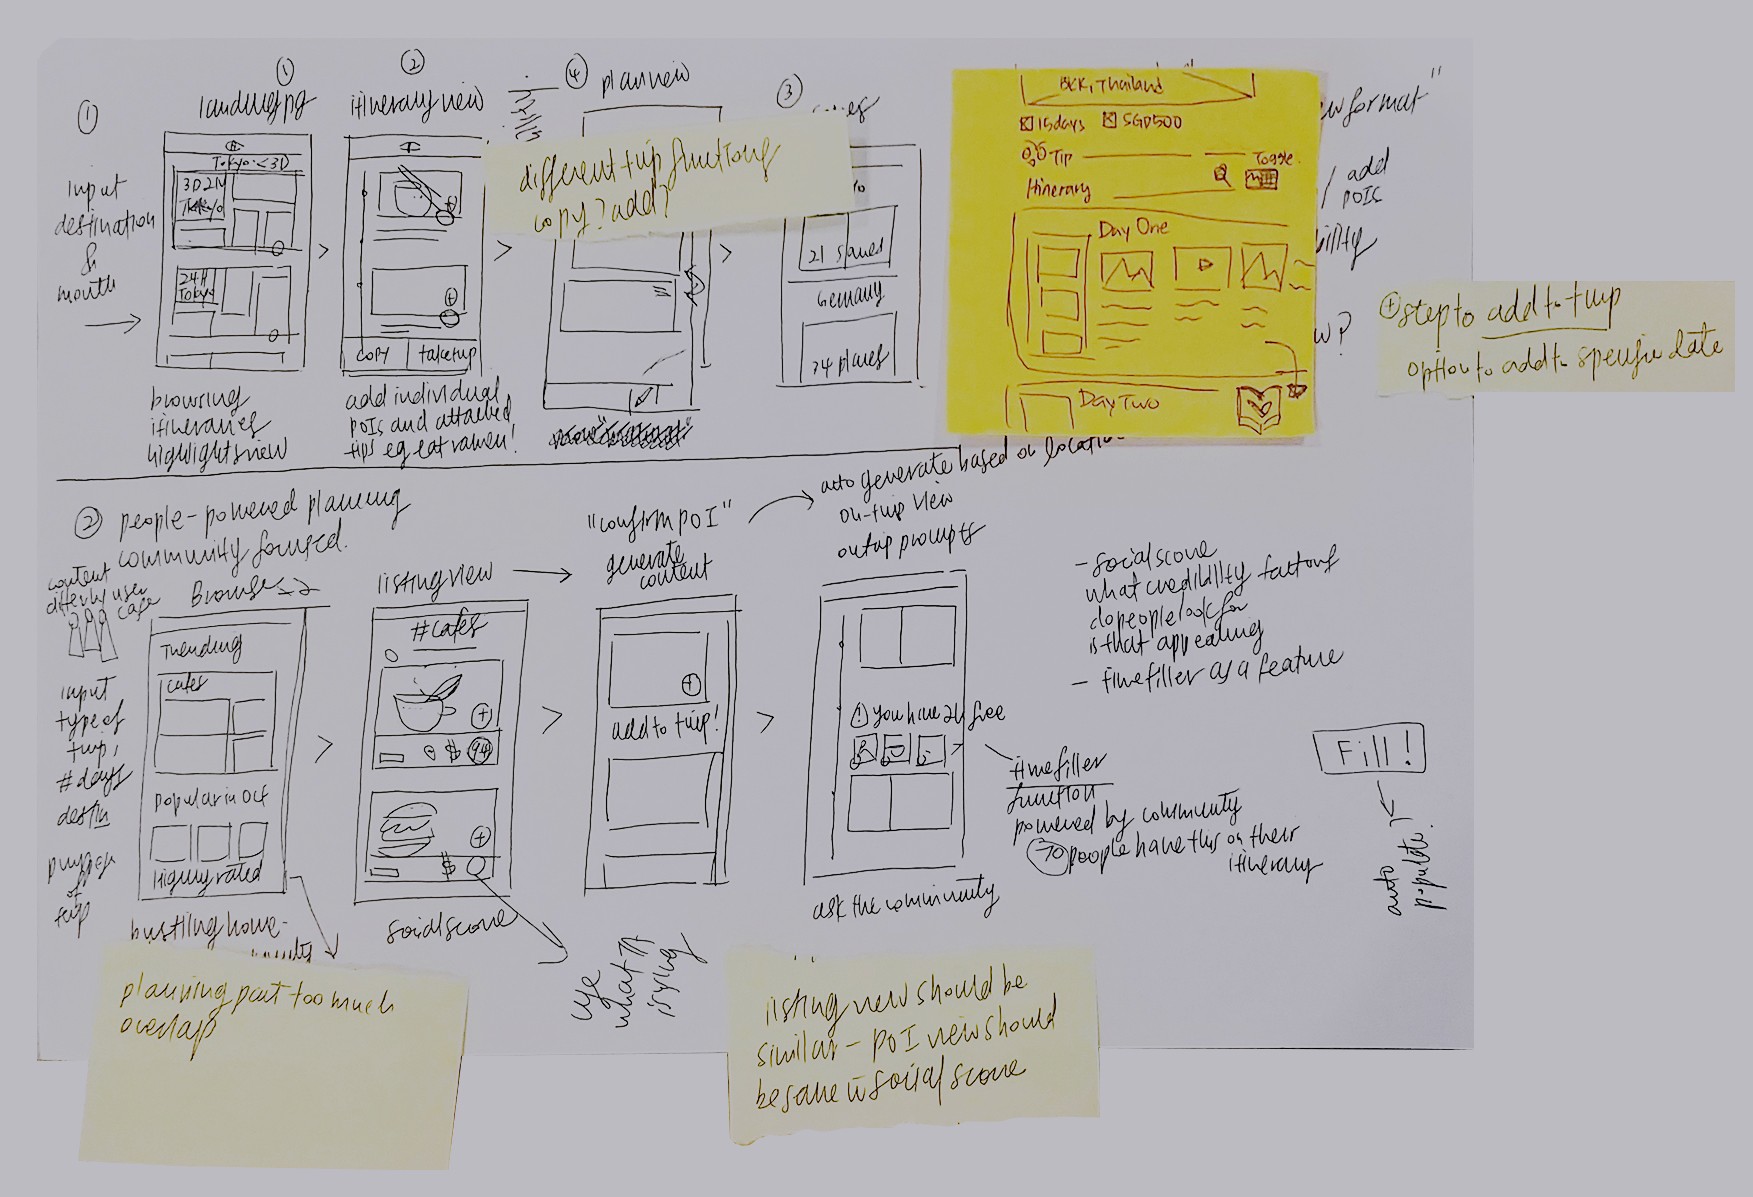 ①
input
destination
&
month
①
landing pg
Tokyo <3D
3D2N
Tokyo
24H
Tokyo
browsing
itineraries
highlights view
②
itinerary view
copy
take tip
add individual
POIs and attached
tips eg eat ramen!
④
plan view
different trip functions
copy? add?
③
21 places
Germany
24 places
BKK, Thailand
15days
SGD500
Tip
Toggle
Itinerary
Day One
Day Two
format
/ add
POIs
bility
w?
+ step to add to trip
option to add to specific date
② people-powered planning
community focused.
content
differ by user
case
input
type of
trip,
# days
destin
purpose
of
trip
Browse
Trending
cafes
popular in Oct
Highly rated
bustling home-
planning part too much
overlap
listing view
#cafes
+
$
94
+
$
social score
use
what TA
is using
"confirm POI"
generate
content
+
add to trip!
auto generate based on location
on-trip view
on trip prompts
! you have 2h free
ask the community
timefiller
function
powered by community
70 people have this on their
itinerary
- social score
what credibility factors
do people look for
is that appealing
- timefiller as a feature
Fill!
auto
populate?
listing view should be
similar - POI view should
be same w social score